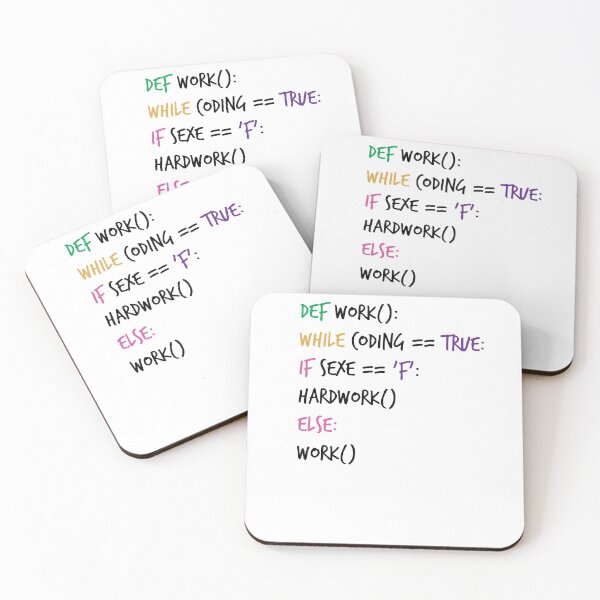 DEF WORK():
WHILE CODING == TRUE:
IF SEXE == 'F':
HARDWORK()
ELSE:
DEF WORK():
WHILE CODING == TRUE:
IF SEXE == 'F':
HARDWORK()
ELSE:
WORK()
DEF WORK():
WHILE CODING == TRUE:
IF SEXE == 'F':
HARDWORK()
ELSE:
WORK()
DEF WORK():
WHILE CODING == TRUE:
IF SEXE == 'F':
HARDWORK()
ELSE:
WORK()